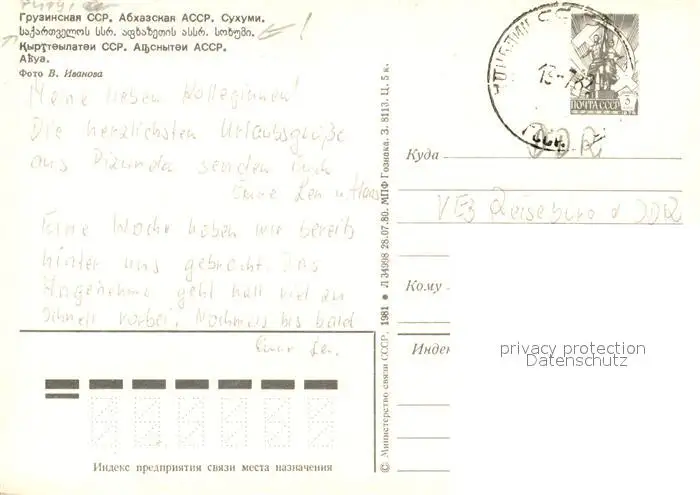 Грузинская ССР. Абхазская АССР. Сухуми.
საქართველოს სსრ. აფხაზეთის ასსრ. სოხუმი.
Қырҭтәылатәи ССР. Аԥснытәи АССР.
Аҟуа.
Фото В. Иванова
Meine lieben Kolleginnen!
Die herzlichsten Urlaubsgrüße
aus Pizunda senden Euch
Eure u Hans
Eine Woche haben wir bereits
hinter uns gebracht. Das
Angenehme geht halt viel zu
schnell vorbei. Nochmals bis bald
Eure
Индекс предприятия связи места назначения
© Министерство связи СССР, 1981 ● Л 34998 28.07.80. МПФ Гознака. З. 8113. Ц. 5 к.
ПОЧТА СССР
DDR
Куда
VEB Reisebüro d DDR
Кому
Индек
privacy protection
Datenschutz